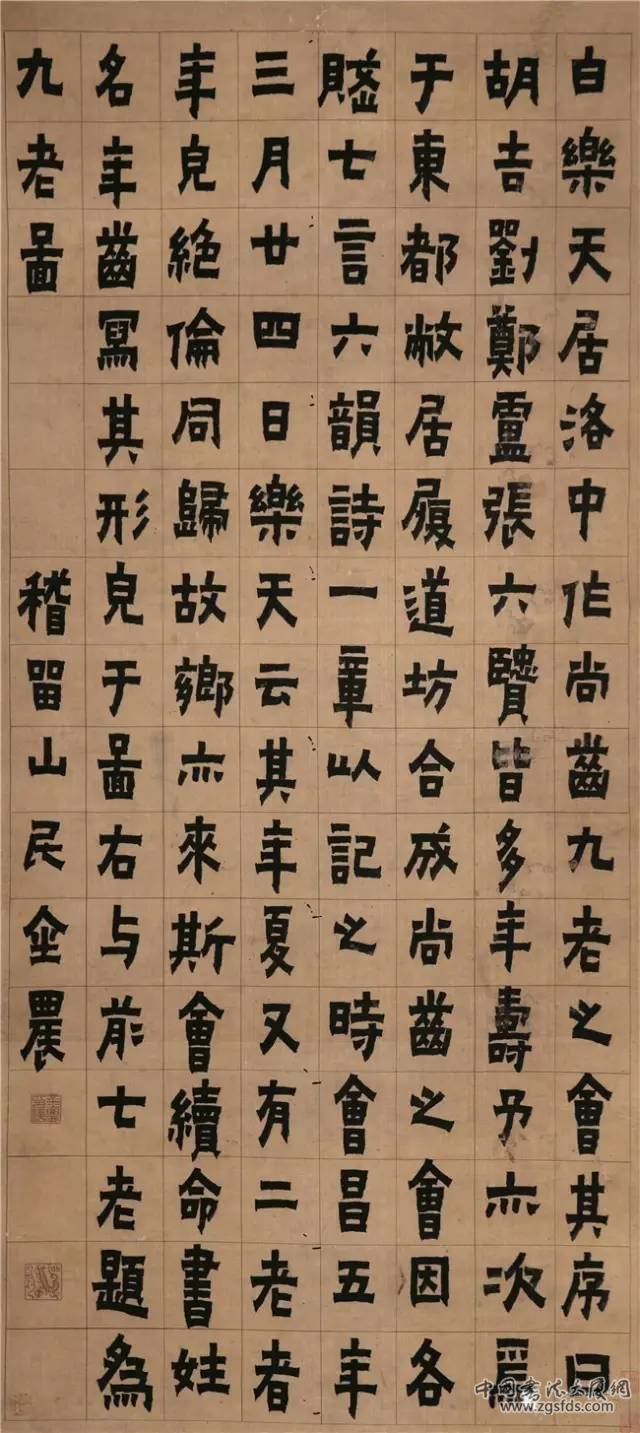 白樂天居洛中作尚齒九老之會其序曰
胡吉劉鄭盧張六賢皆多年壽予亦次焉
于東都敝居履道坊合成尚齒之會因各
賦七言六韻詩一章以記之時會昌五年
三月廿四日樂天云其年夏又有二老者
年皃絶倫同歸故鄉亦來斯會續命書姓
名年齒寫其形皃于圖右与前七老題為
九老圖
稽留山民金農
中国书法大厦網
www.zgsfds.com